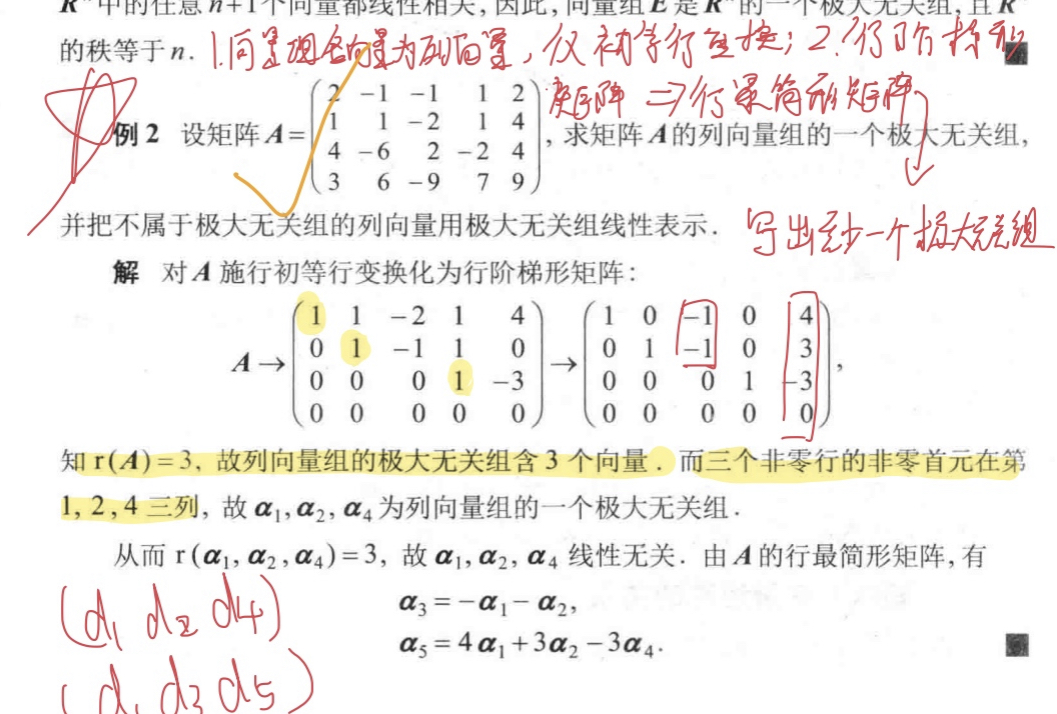 R^n 中的任意 n+1 个向量都线性相关, 因此, 向量组 E 是 R^n 的一个极大无关组, 且 R^n
的秩等于 n. 1.向量组合向量为列向量, 仅初等行变换; 2.行阶梯形
矩阵 ⇒ 行最简形矩阵
例 2 设矩阵 A = ( 2 −1 −1 1 2
1 1 −2 1 4
4 −6 2 −2 4
3 6 −9 7 9 ), 求矩阵 A 的列向量组的一个极大无关组,
并把不属于极大无关组的列向量用极大无关组线性表示. 写出至少一个极大无关组
解 对 A 施行初等行变换化为行阶梯形矩阵:
A → ( 1 1 −2 1 4 ) → ( 1 0 −1 0 4 )
( 0 1 −1 1 0 ) ( 0 1 −1 0 3 )
( 0 0 0 1 −3 ) ( 0 0 0 1 −3 )
( 0 0 0 0 0 ) ( 0 0 0 0 0 ),
知 r(A)=3, 故列向量组的极大无关组含 3 个向量. 而三个非零行的非零首元在第
1, 2, 4 三列, 故 α₁, α₂, α₄ 为列向量组的一个极大无关组.
从而 r(α₁, α₂, α₄)=3, 故 α₁, α₂, α₄ 线性无关. 由 A 的行最简形矩阵, 有
α₃ = −α₁ − α₂,
α₅ = 4α₁ + 3α₂ − 3α₄.
(α₁ α₂ α₄)
(α₁ α₃ α₅)